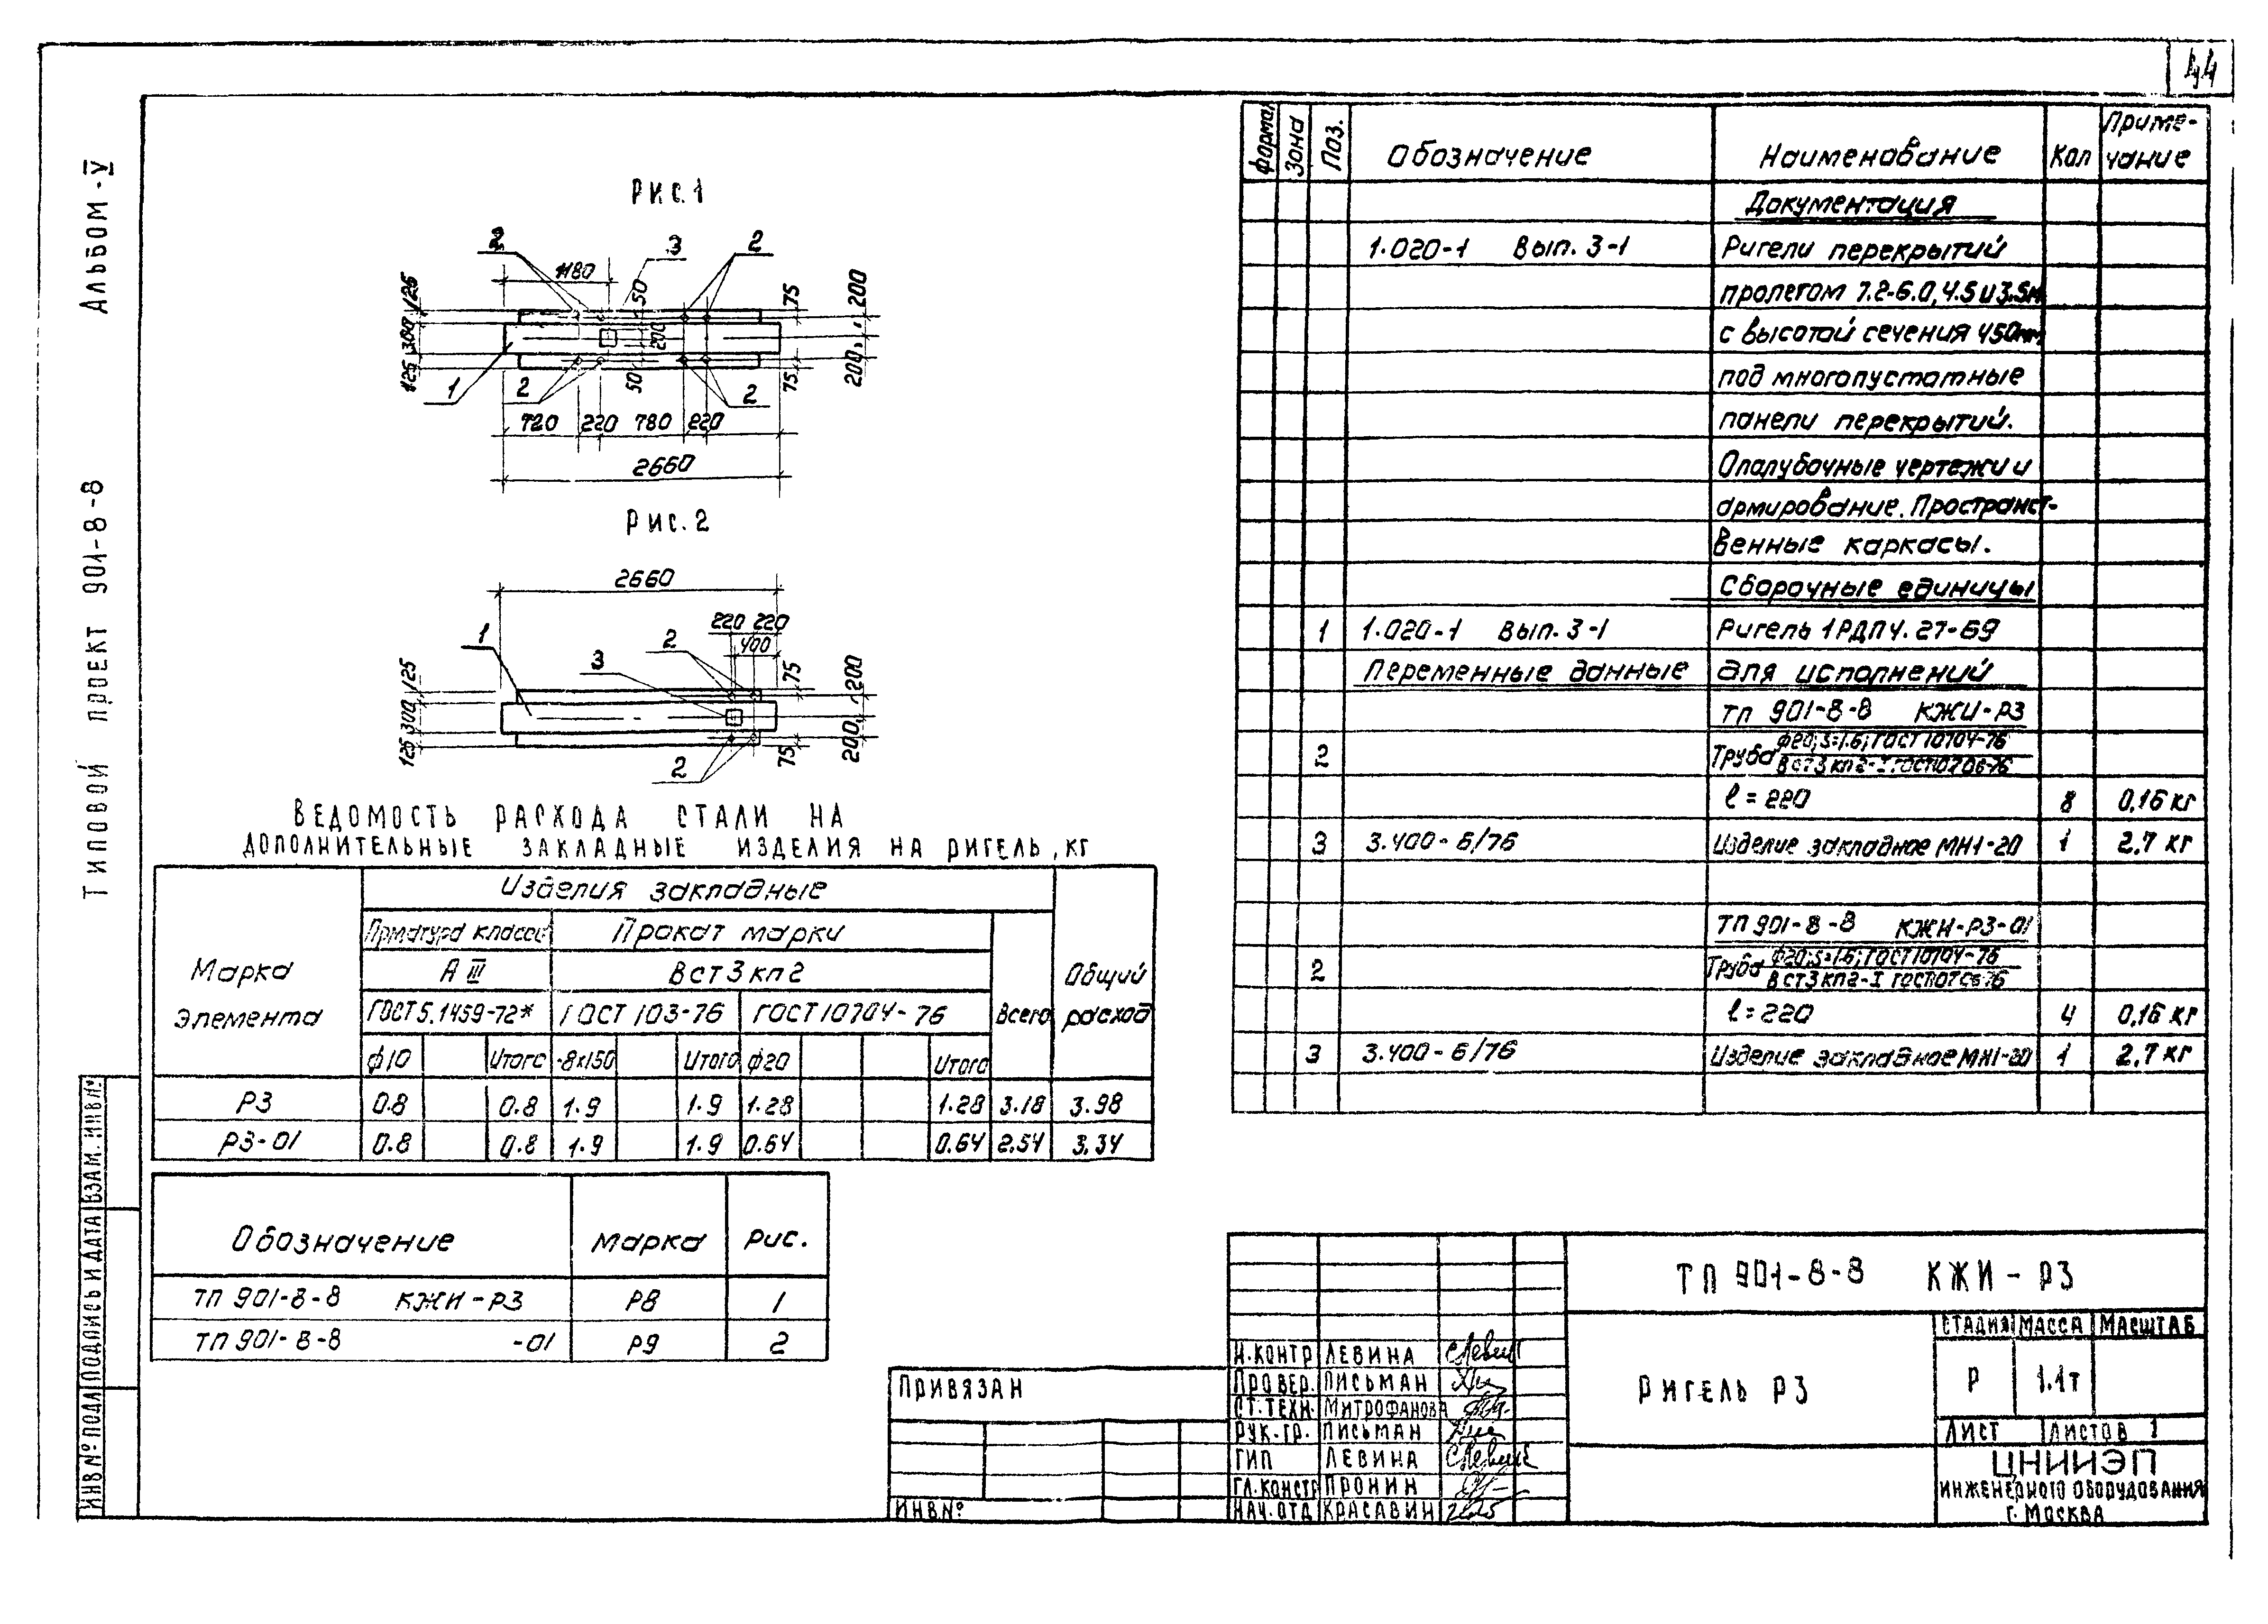 44
Альбом-V
Типовой проект 901-8-8
Рис.1
2
3
2
1180
125
300
125
50
200
50
75
75
200
200
1
2
2
720
220
780
220
2660
Рис.2
2660
220
220
400
1
2
3
125
300
125
75
75
200
200
2
Ведомость расхода стали на
дополнительные закладные изделия на ригель, кг
Марка элемента
Изделия закладные
Общий расход
Арматура класса
Прокат марки
Всего
А III
Вст3кп2
ГОСТ 5.1459-72*
ГОСТ 103-76
ГОСТ 10704-76
ф10 Итого -8х150 Итого ф20 Итого
Р3 0.8 0.8 1.9 1.9 1.28 1.28 3.18 3.98
Р3-01 0.8 0.8 1.9 1.9 0.64 0.64 2.54 3.34
Обозначение Марка Рис.
ТП 901-8-8 КЖИ-Р3 Р8 1
ТП 901-8-8 -01 Р9 2
Формат Зона Поз. Обозначение Наименование Кол Приме-
чание
Документация
1.020-1 Вып. 3-1 Ригели перекрытий
пролетом 7.2-6.0, 4.5 и 3.5м
с высотой сечения 450мм
под многопустотные
панели перекрытий.
Опалубочные чертежи и
армирование. Пространст-
венные каркасы.
Сборочные единицы
1 1.020-1 Вып. 3-1 Ригель 1РДП4.27-69
Переменные данные для исполнений
ТП 901-8-8 КЖИ-Р3
2 Труба ф20; S=1.6; ГОСТ 10704-76
Вст3кп2-I ГОСТ10706-76
ℓ=220 8 0,16 кг
3 3.400-6/76 Изделие закладное МН1-20 1 2,7 кг
ТП 901-8-8 КЖИ-Р3-01
2 Труба ф20; S=1.6; ГОСТ 10704-76
Вст3кп2-I ГОСТ10706-76
ℓ=220 4 0,16 кг
3 3.400-6/76 Изделие закладное МН1-20 1 2,7 кг
Инв № подл Подпись и дата Взам. инв №
Привязан
Инв №
Н.контр Левина
Провер. Письман
Ст.техн. Митрофанова
Рук.гр. Письман
ГИП Левина
Гл.констр Пронин
Нач.отд Красавин
ТП 901-8-8 КЖИ-Р3
Ригель Р3
Стадия Масса Масштаб
Р 1.1т
Лист Листов 1
ЦНИИЭП
инженерного оборудования
г. Москва